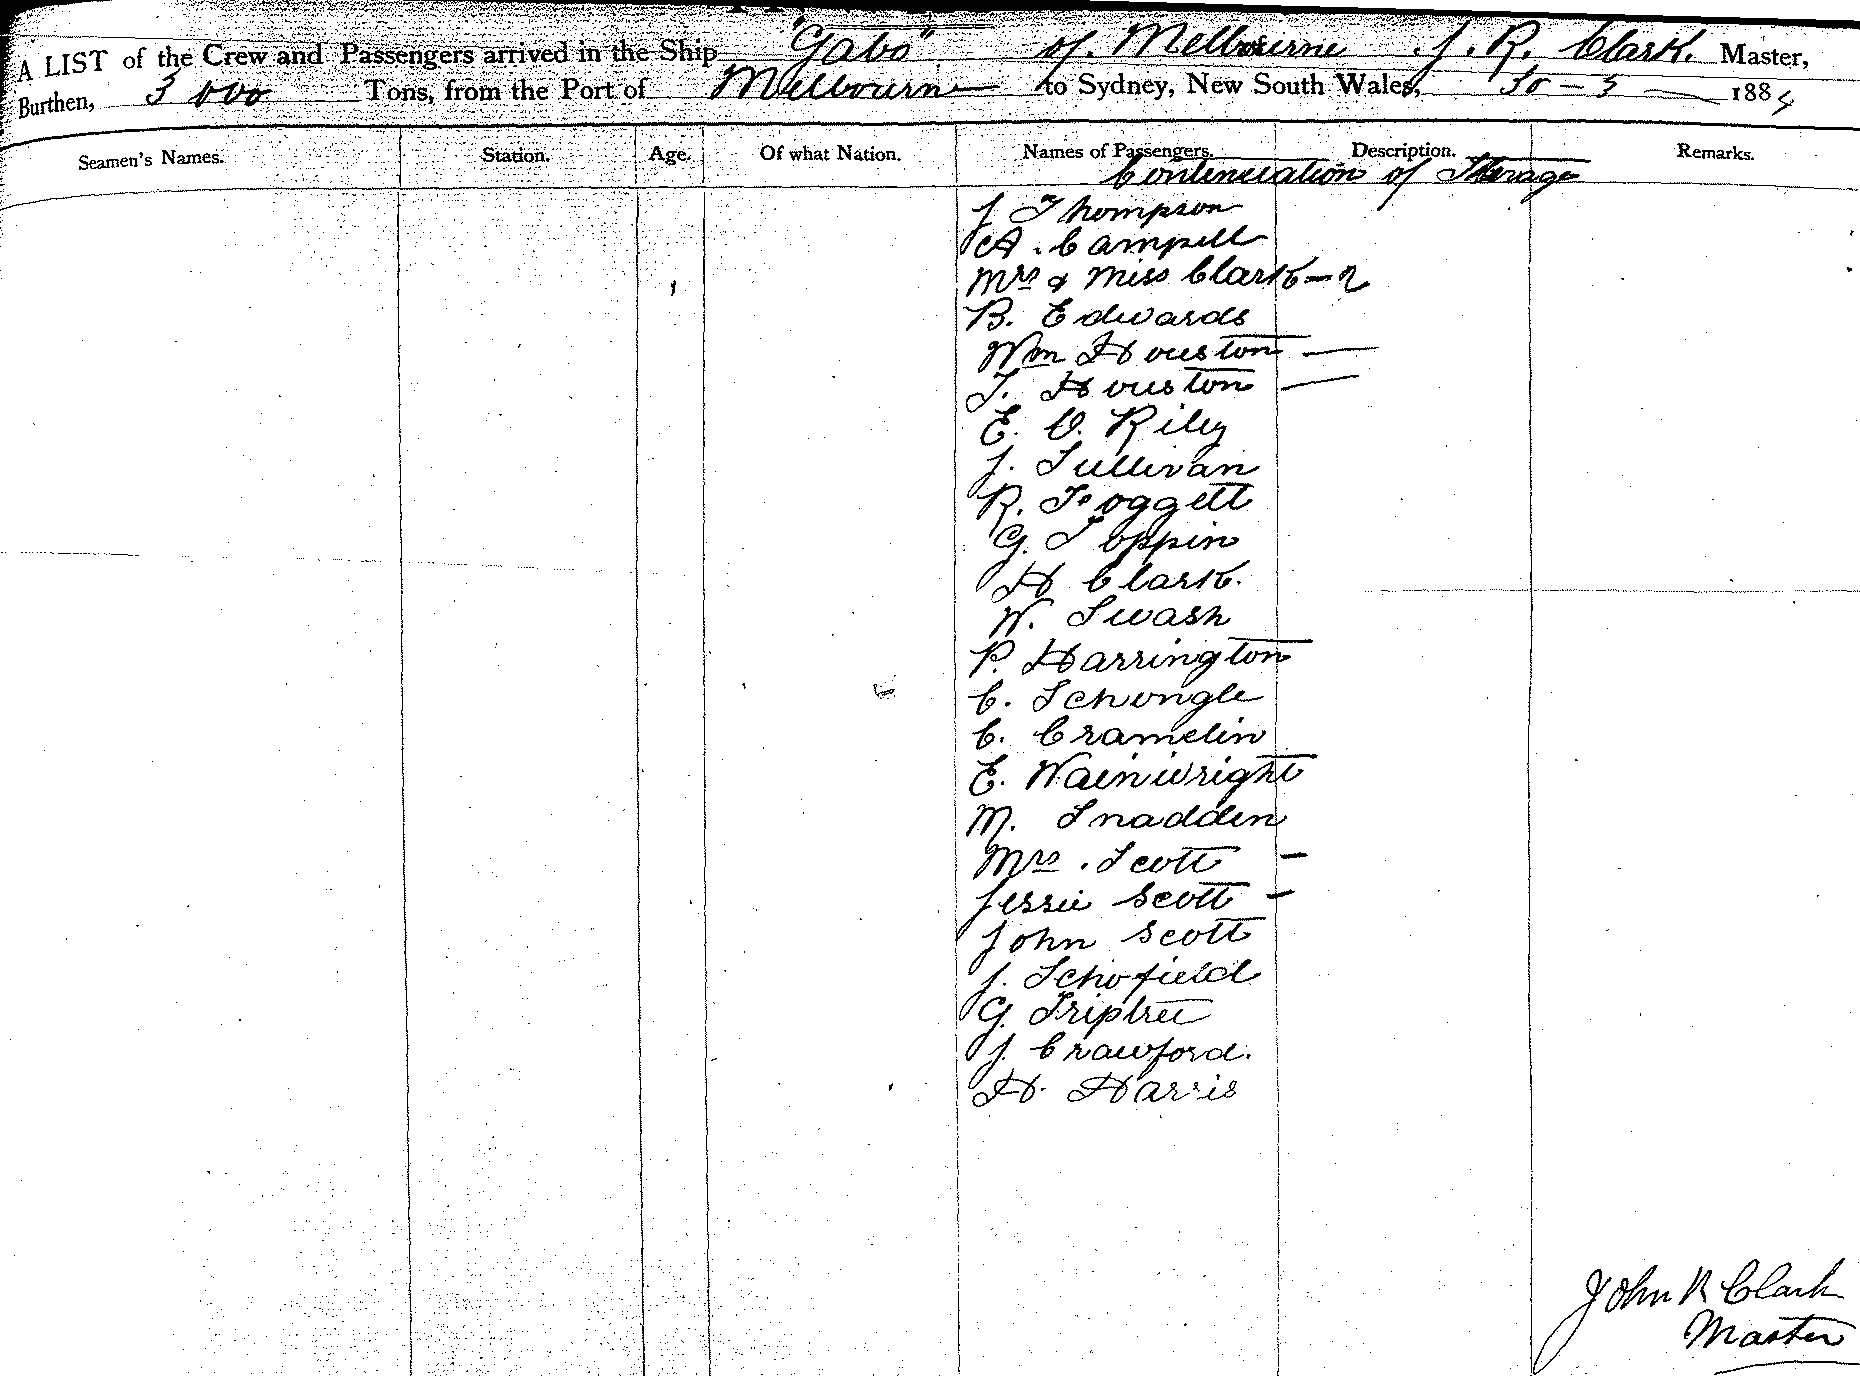 A LIST of the Crew and Passengers arrived in the Ship "Gabo" of Melbourne J. R. Clark. Master,
Burthen, 3000 Tons, from the Port of Melbourne to Sydney, New South Wales, 30 - 5 - 188
Seamen's Names. Station. Age. Of what Nation. Names of Passengers. Description. Remarks.
Continuation of Sterage
J Thompson
A. Campell
Mrs & Miss Clark - 2
B. Edwards
Wm Houston —
T. Houston —
E. O. Riley
J. Sullivan
R. Foggett
G. Toppin
H Clark.
W. Swash
P. Harrington
C. Schongle
C. Cramelin
E. Wainwright
M. Snadden
Mrs. Scott -
Jessie Scott -
John Scott
J. Schofield
G. Triptree
J. Crawford.
H. Harris
John R Clark
Master